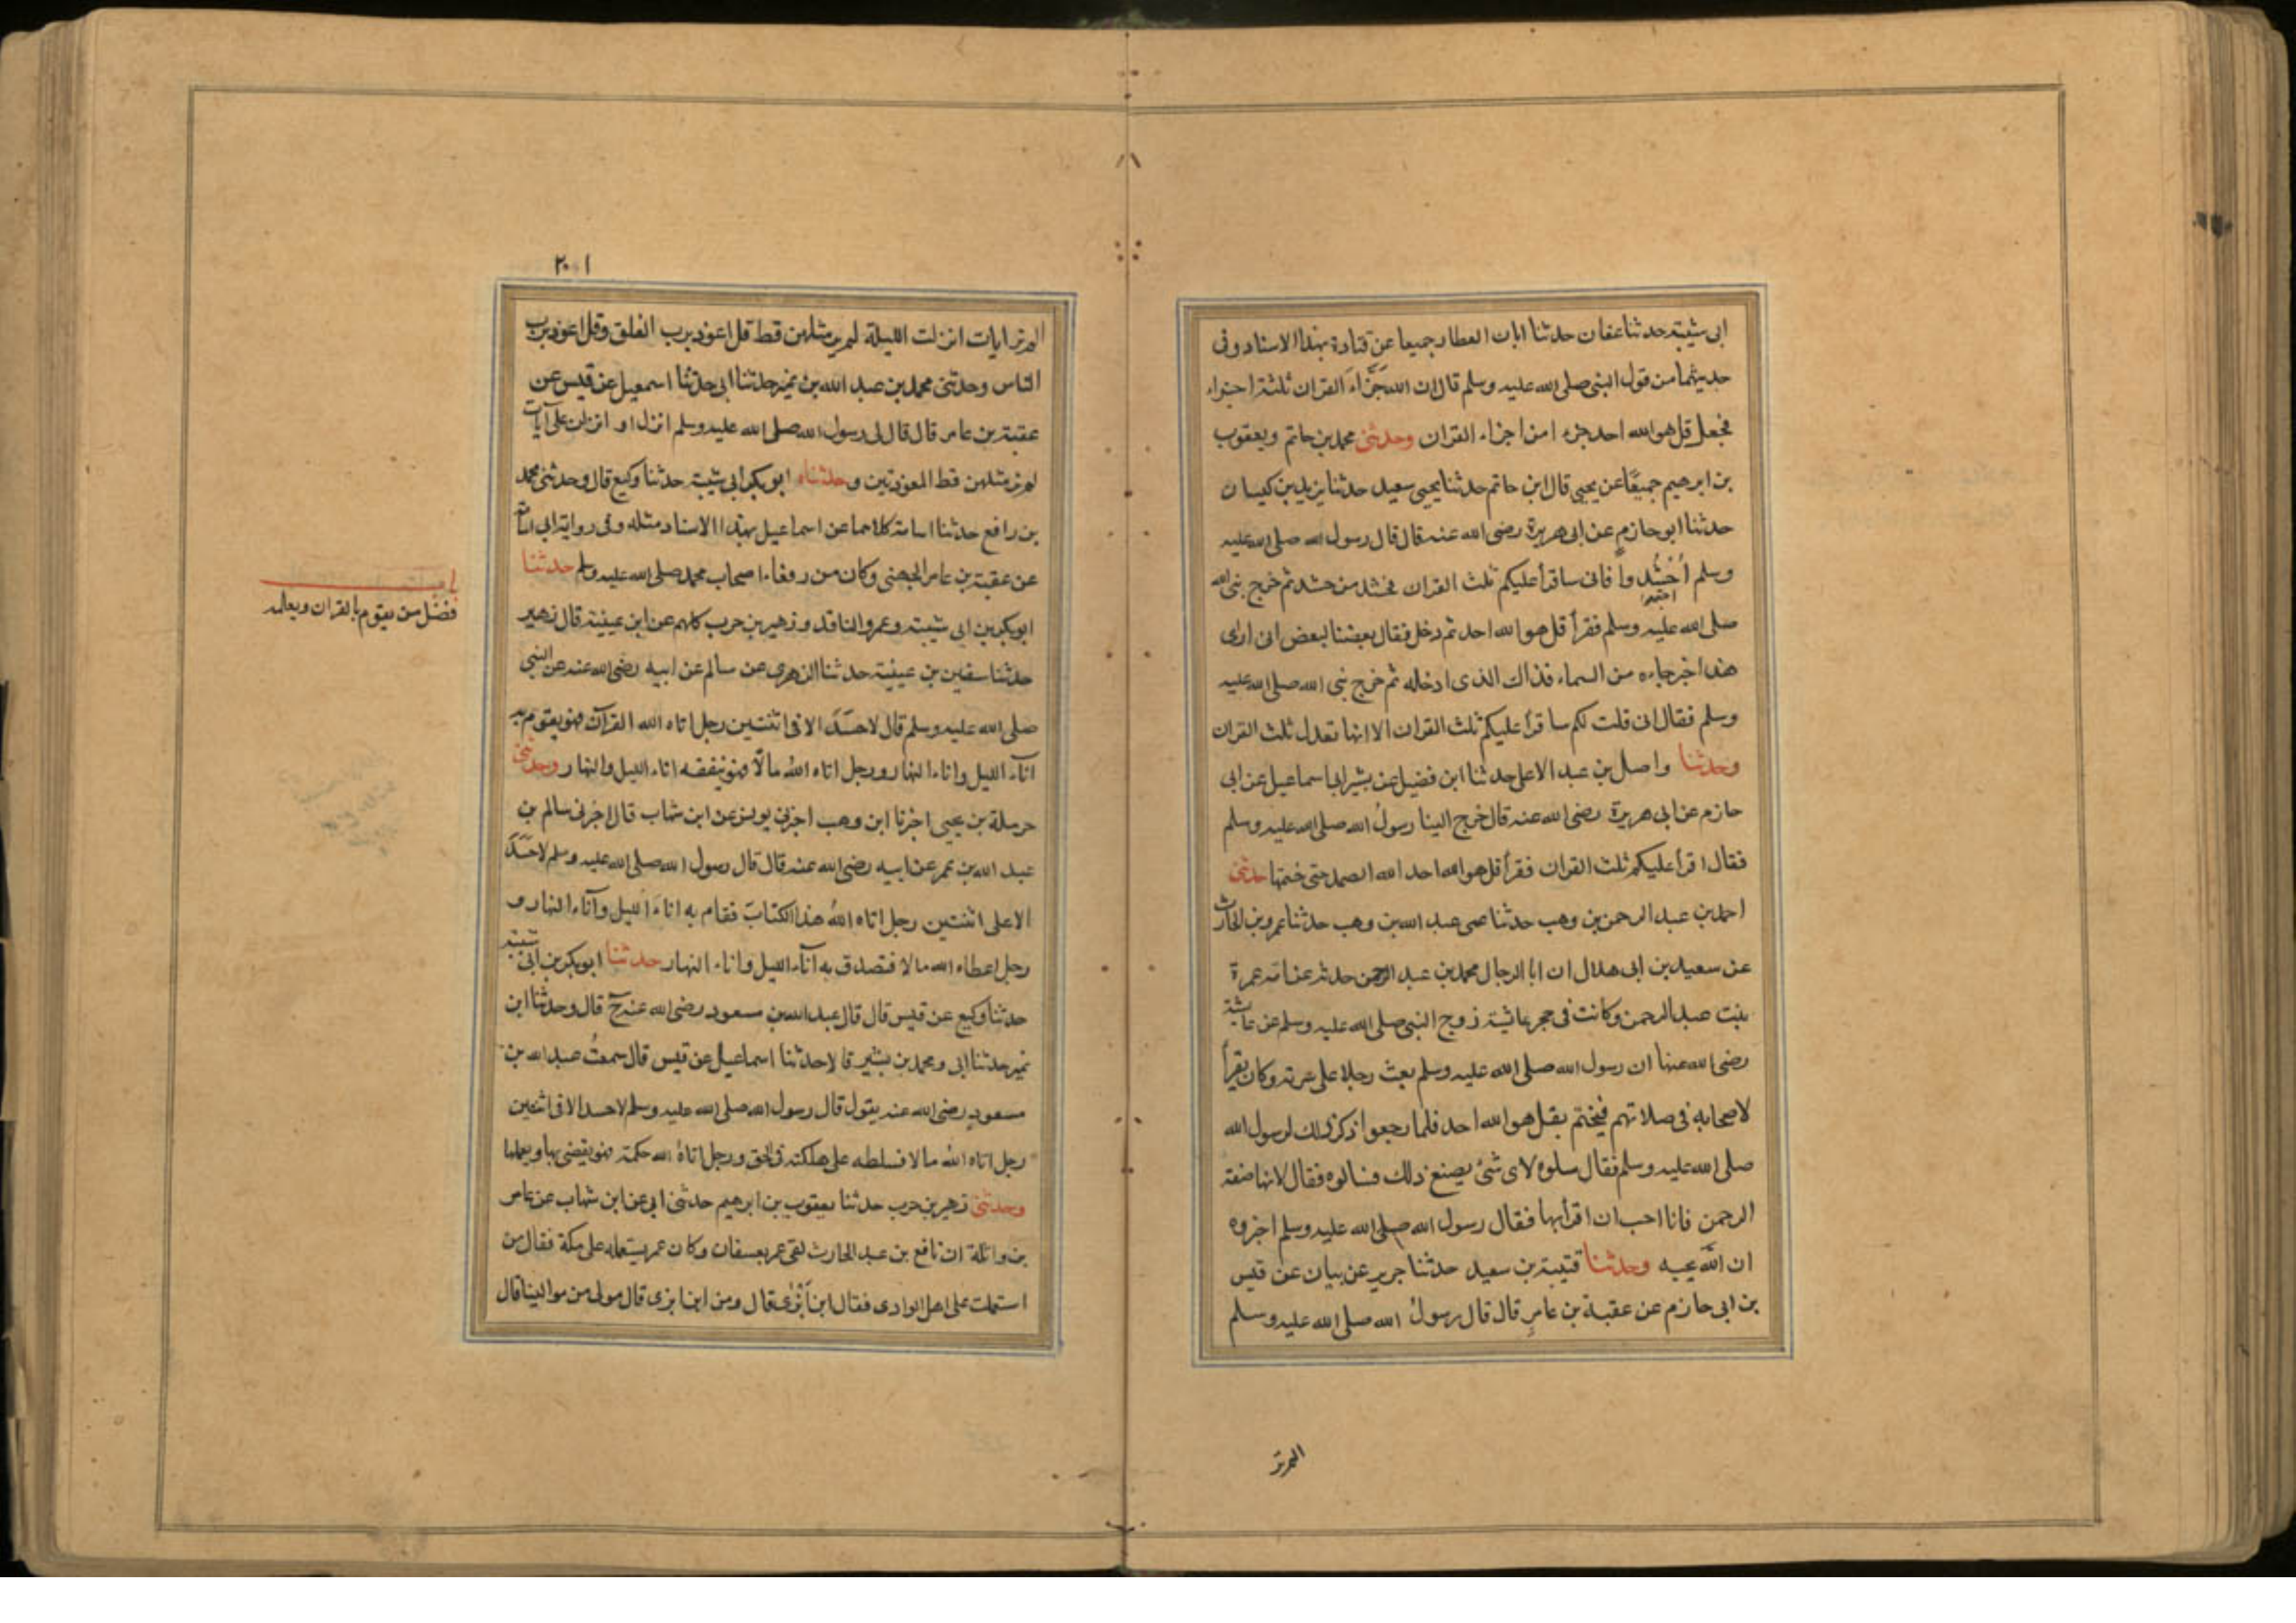 ابى شيبة حدثنا عفان حدثنا ابان العطار جميعا عن قتادة بهذا الاسناد وفى
حديثهما من قول النبى صلى الله عليه وسلم قال ان الله جَزَّاءَ القران ثلثة اجزاء
فجعل قل هو الله احد جزءا من اجزاء القران وحدثنى محمد بن حاتم ويعقوب
بن ابرهيم جميعًا عن يحيى قال ابن حاتم حدثنا يحيى سعيد حدثنا يزيد بن كيسان
حدثنا ابو حازم عن ابى هريرة رضى الله عنه قال قال رسول الله صلى الله عليه
وسلم اُحْشُدوا فانى ساقرأ عليكم ثلث القران فحشد من حشد ثم خرج نبى الله
صلى الله عليه وسلم فقرأ قل هو الله احد ثم دخل فقال بعضنا لبعض انى ارى
هذا خبر جاءه من السماء فذاك الذى ادخله ثم خرج نبى الله صلى الله عليه
وسلم فقال انى قلت لكم ساقرأ عليكم ثلث القران الا انها تعدل ثلث القران
وحدثنا واصل بن عبد الاعلى حدثنا ابن فضيل عن بشير ابى اسماعيل عن ابى
حازم عن ابى هريرة رضى الله عنه قال خرج الينا رسولُ الله صلى الله عليه وسلم
فقال اقرأ عليكم ثلث القران فقرأ قل هو الله احد الله الصمد حتى ختمها حدثنى
احمد بن عبد الرحمن بن وهب حدثنا عمى عبد الله بن وهب حدثنا عمرو بن الحارث
عن سعيد بن ابى هلال ان ابا الرجال محمد بن عبد الرحمن حدثه عن امه عمرة
بنت عبد الرحمن وكانت فى حجر عائشة زوج النبى صلى الله عليه وسلم عن عائشة
رضى الله عنها ان رسول الله صلى الله عليه وسلم بعث رجلا على سرية وكان يقرأ
لاصحابه فى صلاتهم فيختم بقل هو الله احد فلما رجعوا ذكر ذلك لرسول الله
صلى الله عليه وسلم فقال سلوه لاى شئ يصنع ذلك فسالوه فقال لانها صفة
الرحمن فانا احب ان اقرأ بها فقال رسول الله صلى الله عليه وسلم اخبروه
ان اللّه يحبه وحدثنا قتيبة بن سعيد حدثنا جرير عن بيان عن قيس
بن ابى حازم عن عقبة بن عامرٍ قال قال رسولُ الله صلى الله عليه وسلم
المرتر
٢٠١
المرتر ايات انزلت الليلة لم ير مثلهن قط قل اعوذ برب الفلق وقل اعوذ برب
الناس وحدثنى محمد بن عبد الله بن نمير حدثنا ابى حدثنا اسمعيل عن قيس عن
عقبة بن عامر قال قال لى رسول الله صلى الله عليه وسلم انزل او انزلت على آيات
لم ير مثلهن قط المعوذتين وحدثناه ابو بكر ابى شيبة حدثنا وكيع قال وحدثنى محمد
بن رافع حدثنا اسامة كلاهما عن اسماعيل بهذا الاسناد مثله وفى رواية ابى اسامة
عن عقبة بن عامر الجهنى وكان من رفعاء اصحاب محمد صلى الله عليه وسلم حدثنا
ابو بكر بن ابى شيبة وعمرو الناقد وزهير بن حرب كلهم عن ابن عيينة قال زهير
حدثنا سفين بن عيينة حدثنا الزهرى عن سالم عن ابيه رضى الله عنه عن النبى
صلى الله عليه وسلم قال لا حسَدَ الا فى اثنتين رجل اتاه الله القرآن فهو يقوم به
اناء الليل واناء النهار ورجل اتاه اللهُ مالًا فهو ينفقه اناء الليل والنهار وحدثنى
حرملة بن يحيى اخبرنا ابن وهب اخبرنى يونس عن ابن شهاب قال اخبرنى سالم بن
عبد الله بن عمر عن ابيه رضى الله عنه قال قال رسول الله صلى الله عليه وسلم لا حَسَدَ
الا على اثنتين رجل اتاه اللهُ هذا الكتابَ فقام به اناءَ الليل وآناء النهار و
رجل اعطاه الله مالا فتصدق به آناء الليل واناء النهار حدثنا ابو بكر بن ابى شيبة
حدثنا وكيع عن قيس قال قال عبد الله بن مسعود رضى الله عنه ح قال وحدثنا ابن
نمير حدثنا ابى ومحمد بن بشير قالا حدثنا اسماعيل عن قيس قال سمعتُ عبد الله بن
مسعودٍ رضى الله عنه يقول قال رسول الله صلى الله عليه وسلم لا حسد الا فى اثنتين
رجل اتاه اللهُ مالا فسلطه على هلكته فى الحق ورجل اتاهُ الله حكمة فهو يقضى بها ويعلمها
وحدثنى زهير بن حرب حدثنا يعقوب بن ابرهيم حدثنى ابى عن ابن شهاب عن عامر
بن واثلة ان نافع بن عبد الحارث لقى عمر بعسفان وكان عمر يستعمله على مكة فقال من
استعملت على اهل الوادى فقال ابن أَبْزٰى قال ومن ابن ابزى قال مولى من موالينا قال
فضل من يقوم بالقران ويعلمه